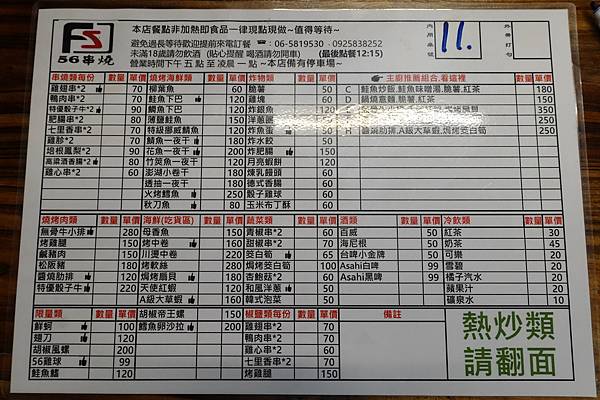 FS
56串燒
本店餐點非加熱即食品一律現點現做~值得等待~
避免過長等待歡迎提前來電訂餐 ☎:06-5819530、0925838252
未滿18歲請勿飲酒 (貼心提醒 喝酒請勿開車) (最後點餐12:15)
營業時間下午 五 點 至 凌晨 一 點 ~本店備有停車場~
內用桌號 11. 外帶打勾
串燒類每份 數量 單價 燒烤海鮮類 數量 單價 炸物類 數量 單價 主廚推薦組合,看這裡 數量 單價
雞翅串*2 70 柳葉魚 脆薯 50 C 鮭魚炒飯,鮭魚味噌湯,脆薯,紅茶 180
鴨肉串*2 70 鮭魚下巴 120 雞塊 60 D 鍋燒意麵,脆薯,紅茶 150
特優骰子牛*2 90 鯛魚下巴 炸銀魚 350
肥腸串*2 80 薄鹽鮭魚 洋蔥圈 250
七里香串*2 70 特級挪威鯖魚 炸魚蛋 50 H 醬燒肋排,A級大草蝦,焗烤茭白筍 250
雞胗*2 鯖魚一夜干 炸水餃 50
培根鳳梨*2 90 花魚一夜干 200 炸肥腸 150
高粱酒香腸*2 60 竹筴魚一夜干 月亮蝦餅 120
雞心串*2 60 澎湖小卷 煉乳饅頭 60
透抽一夜干 德式香腸 60
火烤鱈魚 250 骰子雞球
秋刀魚 80 玉米布丁酥 60
燒烤肉類 數量 單價 海鮮(吃貨區) 數量 單價 蔬菜類 數量 單價 酒類 數量 單價 冷飲類 數量 單價
無骨牛小排 280 母香魚 150 青椒串*2 60 百威 50 紅茶 30
烤雞腿 150 烤中卷 160 甜椒串*2 70 海尼根 50 奶茶 45
鹹豬肉 150 川燙中卷 220 茭白筍 65 台啤小金牌 50 可樂 20
松阪豬 180 烤軟絲 280 焗烤茭白筍 100 Asahi白啤 99 雪碧 20
醬燒肋排 120 焗烤扇貝 180 杏鮑菇*2 60 Asahi黑啤 99 橘子汽水 20
特優骰子牛 220 天使紅蝦 120 和風洋蔥 50 蘋果汁 20
A級大草蝦 160 韓式泡菜 50 礦泉水 10
限量類 數量 單價 胡椒帝王螺 150 椒鹽類每份 數量 單價 備註
鮮蚵 100 鱈魚卵沙拉 200 雞翅串*2 70
翅刀 120 鴨肉串*2 70
胡椒風螺 200 雞心串*2 60
56雞球 99 七里香串*2 70
鮭魚鰭 120 烤雞腿 150
熱炒類
請翻面